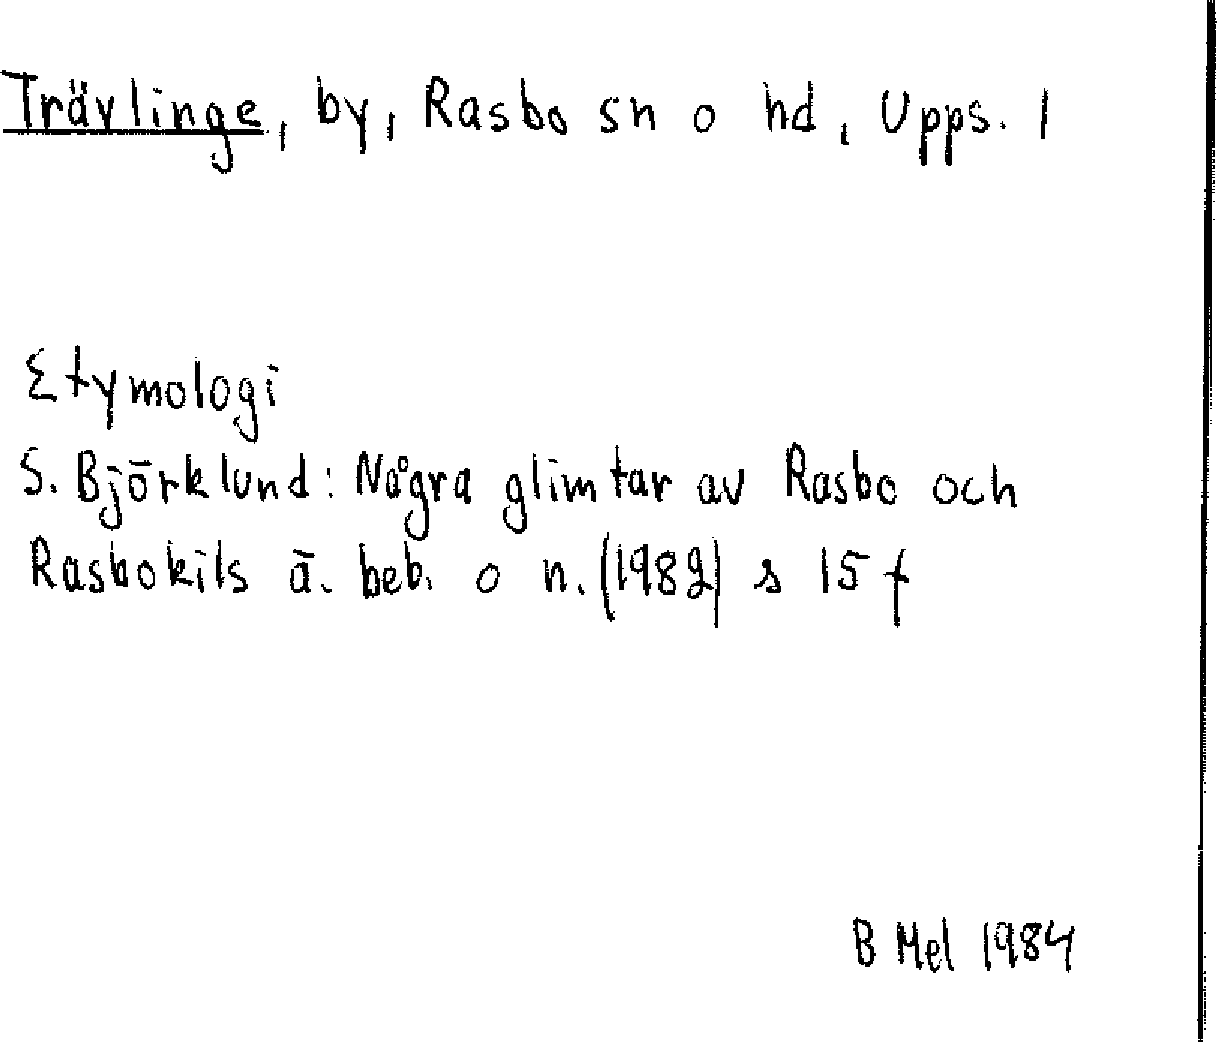 Trävlinge, by, Rasbo sn o hd, Upps. l
Etymologi
S. Björklund: Några glimtar av Rasbo och
Rasbokils ä. beb. o n. (1982) s 15 f
B Mel 1984